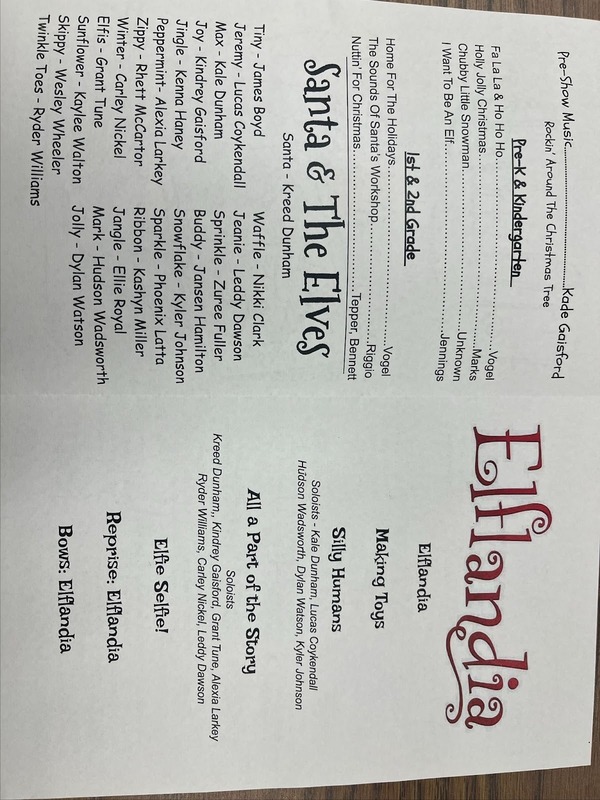 Pre-Show Music..........................................Kade Gaisford
Rockin' Around The Christmas Tree
Pre-K & Kindergarten
Fa La La & Ho Ho Ho..........................................Vogel
Holly Jolly Christmas..........................................Marks
Chubby Little Snowman..........................................Unknown
I Want To Be An Elf..........................................Jennings
1st & 2nd Grade
Home For The Holidays..........................................Vogel
The Sounds Of Santa's Workshop..............................Riggio
Nuttin' For Christmas..............................Tepper, Bennett
Santa & The Elves
Santa - Kreed Dunham
Tiny - James Boyd
Jeremy - Lucas Coykendall
Max - Kale Dunham
Joy - Kindrey Gaisford
Jingle - Kenna Haney
Peppermint- Alexia Larkey
Zippy - Rhett McCartor
Winter - Carley Nickel
Elfis - Grant Tune
Sunflower - Kaylee Walton
Skippy - Wesley Wheeler
Twinkle Toes - Ryder Williams
Waffle - Nikki Clark
Jeanie - Leddy Dawson
Sprinkle - Zuree Fuller
Buddy - Jansen Hamilton
Snowflake - Kyler Johnson
Sparkle - Phoenix Latta
Ribbon - Kashyn Miller
Jangle - Ellie Royal
Mark - Hudson Wadsworth
Jolly - Dylan Watson
Elflandia
Elflandia
Making Toys
Silly Humans
Soloists - Kale Dunham, Lucas Coykendall
Hudson Wadsworth, Dylan Watson, Kyler Johnson
All a Part of the Story
Soloists
Kreed Dunham,, Kindrey Gaisford, Grant Tune, Alexia Larkey
Ryder Williams, Carley Nickel, Leddy Dawson
Elfie Selfie!
Reprise: Elflandia
Bows: Elflandia